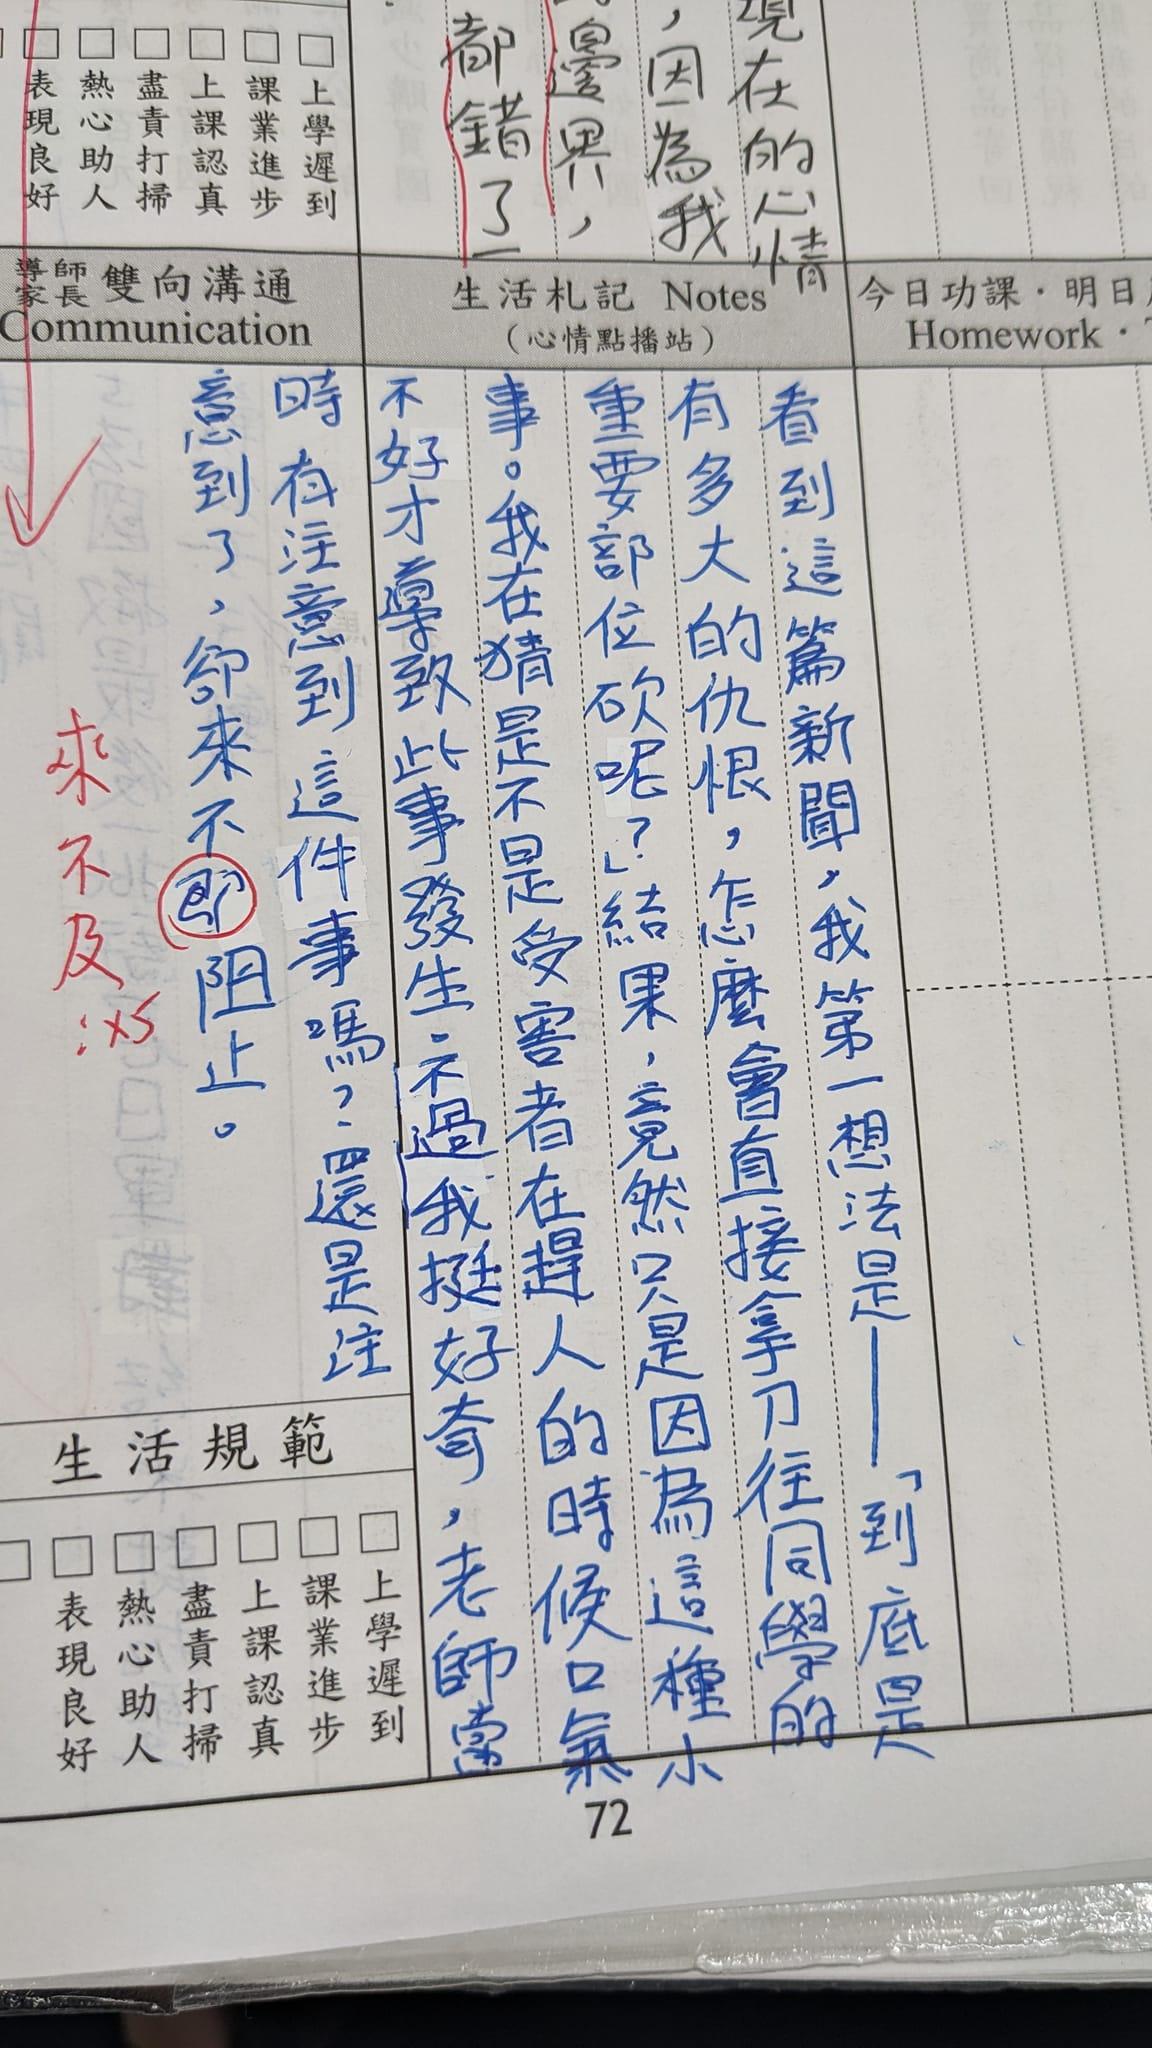 現在的心情
，因為我
邊界，
都錯了
上學遲到
課業進步
上課認真
盡責打掃
熱心助人
表現良好
今日功課·明日
Homework
生活札記 Notes
（心情點播站）
導師
家長
雙向溝通
Communication
看到這篇新聞，我第一想法是——「到底是
有多大的仇恨，怎麼會直接拿刀往同學的
重要部位砍呢？」結果，竟然只是因為這種小
事。我在猜是不是受害者在趕人的時候口氣
不好才導致此事發生。不過我挺好奇，老師當
時有注意到這件事嗎？還是注
意到了，卻來不即阻止。
來不及:x5
生活規範
上學遲到
課業進步
上課認真
盡責打掃
熱心助人
表現良好
72